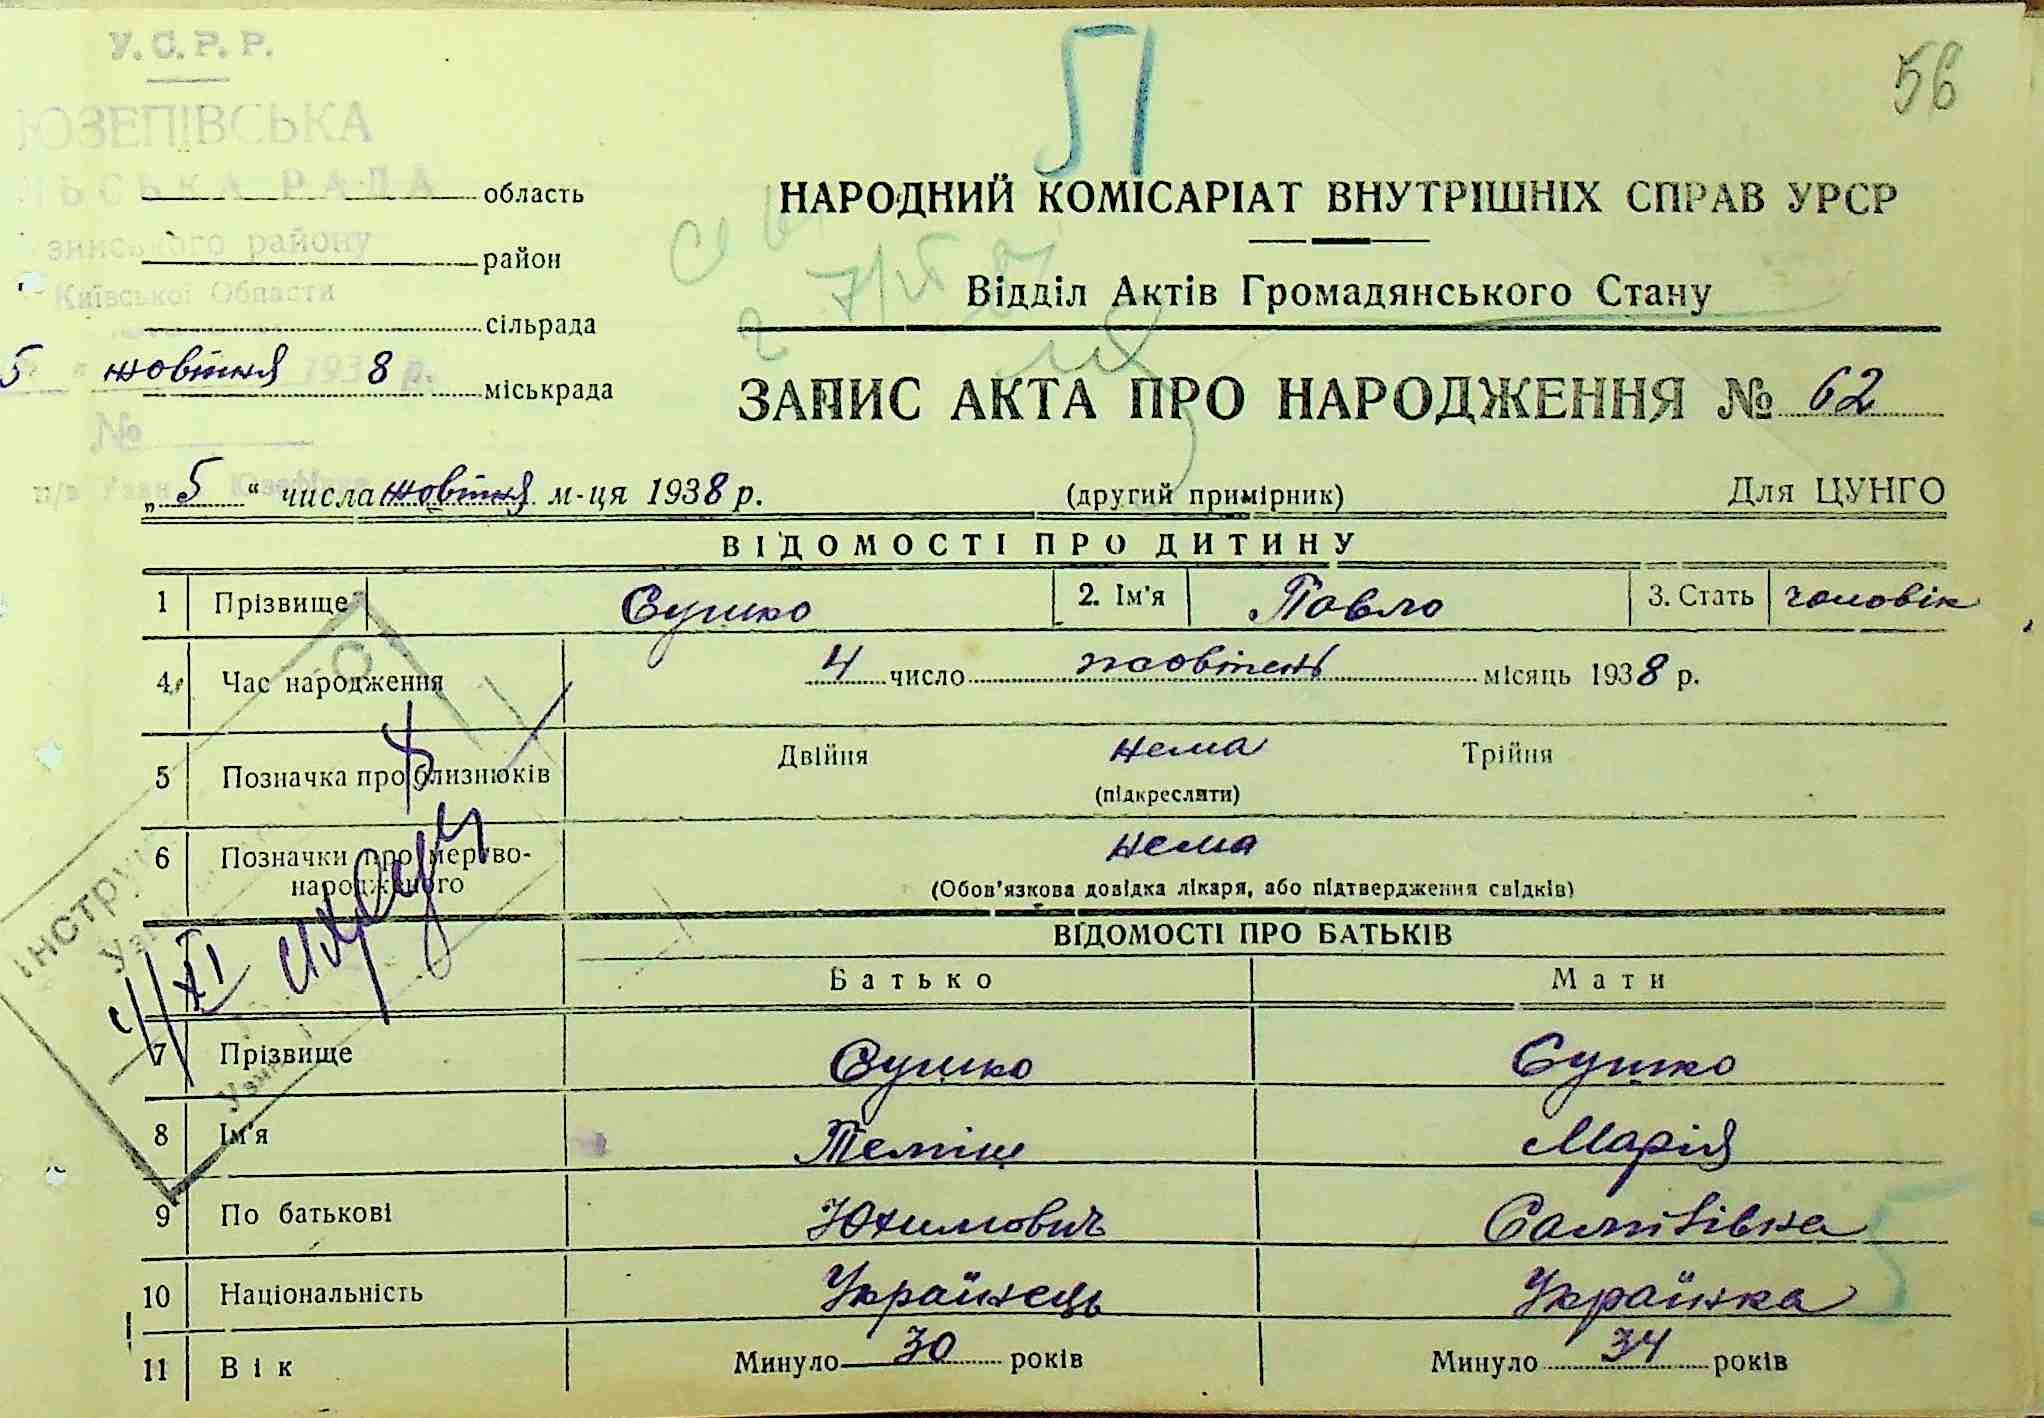 У.С.Р.Р.
ЮЗЕПІВСЬКА
РАДА
району
Київської Області
5 жовтня 1938 р.
№
область
район
сільрада
міськрада
П
56
НАРОДНИЙ КОМІСАРІАТ ВНУТРІШНІХ СПРАВ УРСР
Відділ Актів Громадянського Стану
ЗАПИС АКТА ПРО НАРОДЖЕННЯ № 62
„5“ числа жовтня м-ця 1938 р. (другий примірник) Для ЦУНГО
ВІДОМОСТІ ПРО ДИТИНУ
1 Прізвище Сушко 2. Ім'я Павло 3. Стать чоловік
4 Час народження 4 число жовтень місяць 1938 р.
5 Позначка про близнюків Двійня нема Трійня
(підкреслити)
6 Позначки про мертво-народженого нема
(Обов'язкова довідка лікаря, або підтвердження свідків)
ВІДОМОСТІ ПРО БАТЬКІВ
Батько Мати
7 Прізвище Сушко Сушко
8 Ім'я Марія
9 По батькові Юхимович
10 Національність Українець Українка
11 Вік Минуло 30 років Минуло 34 років
4/XI